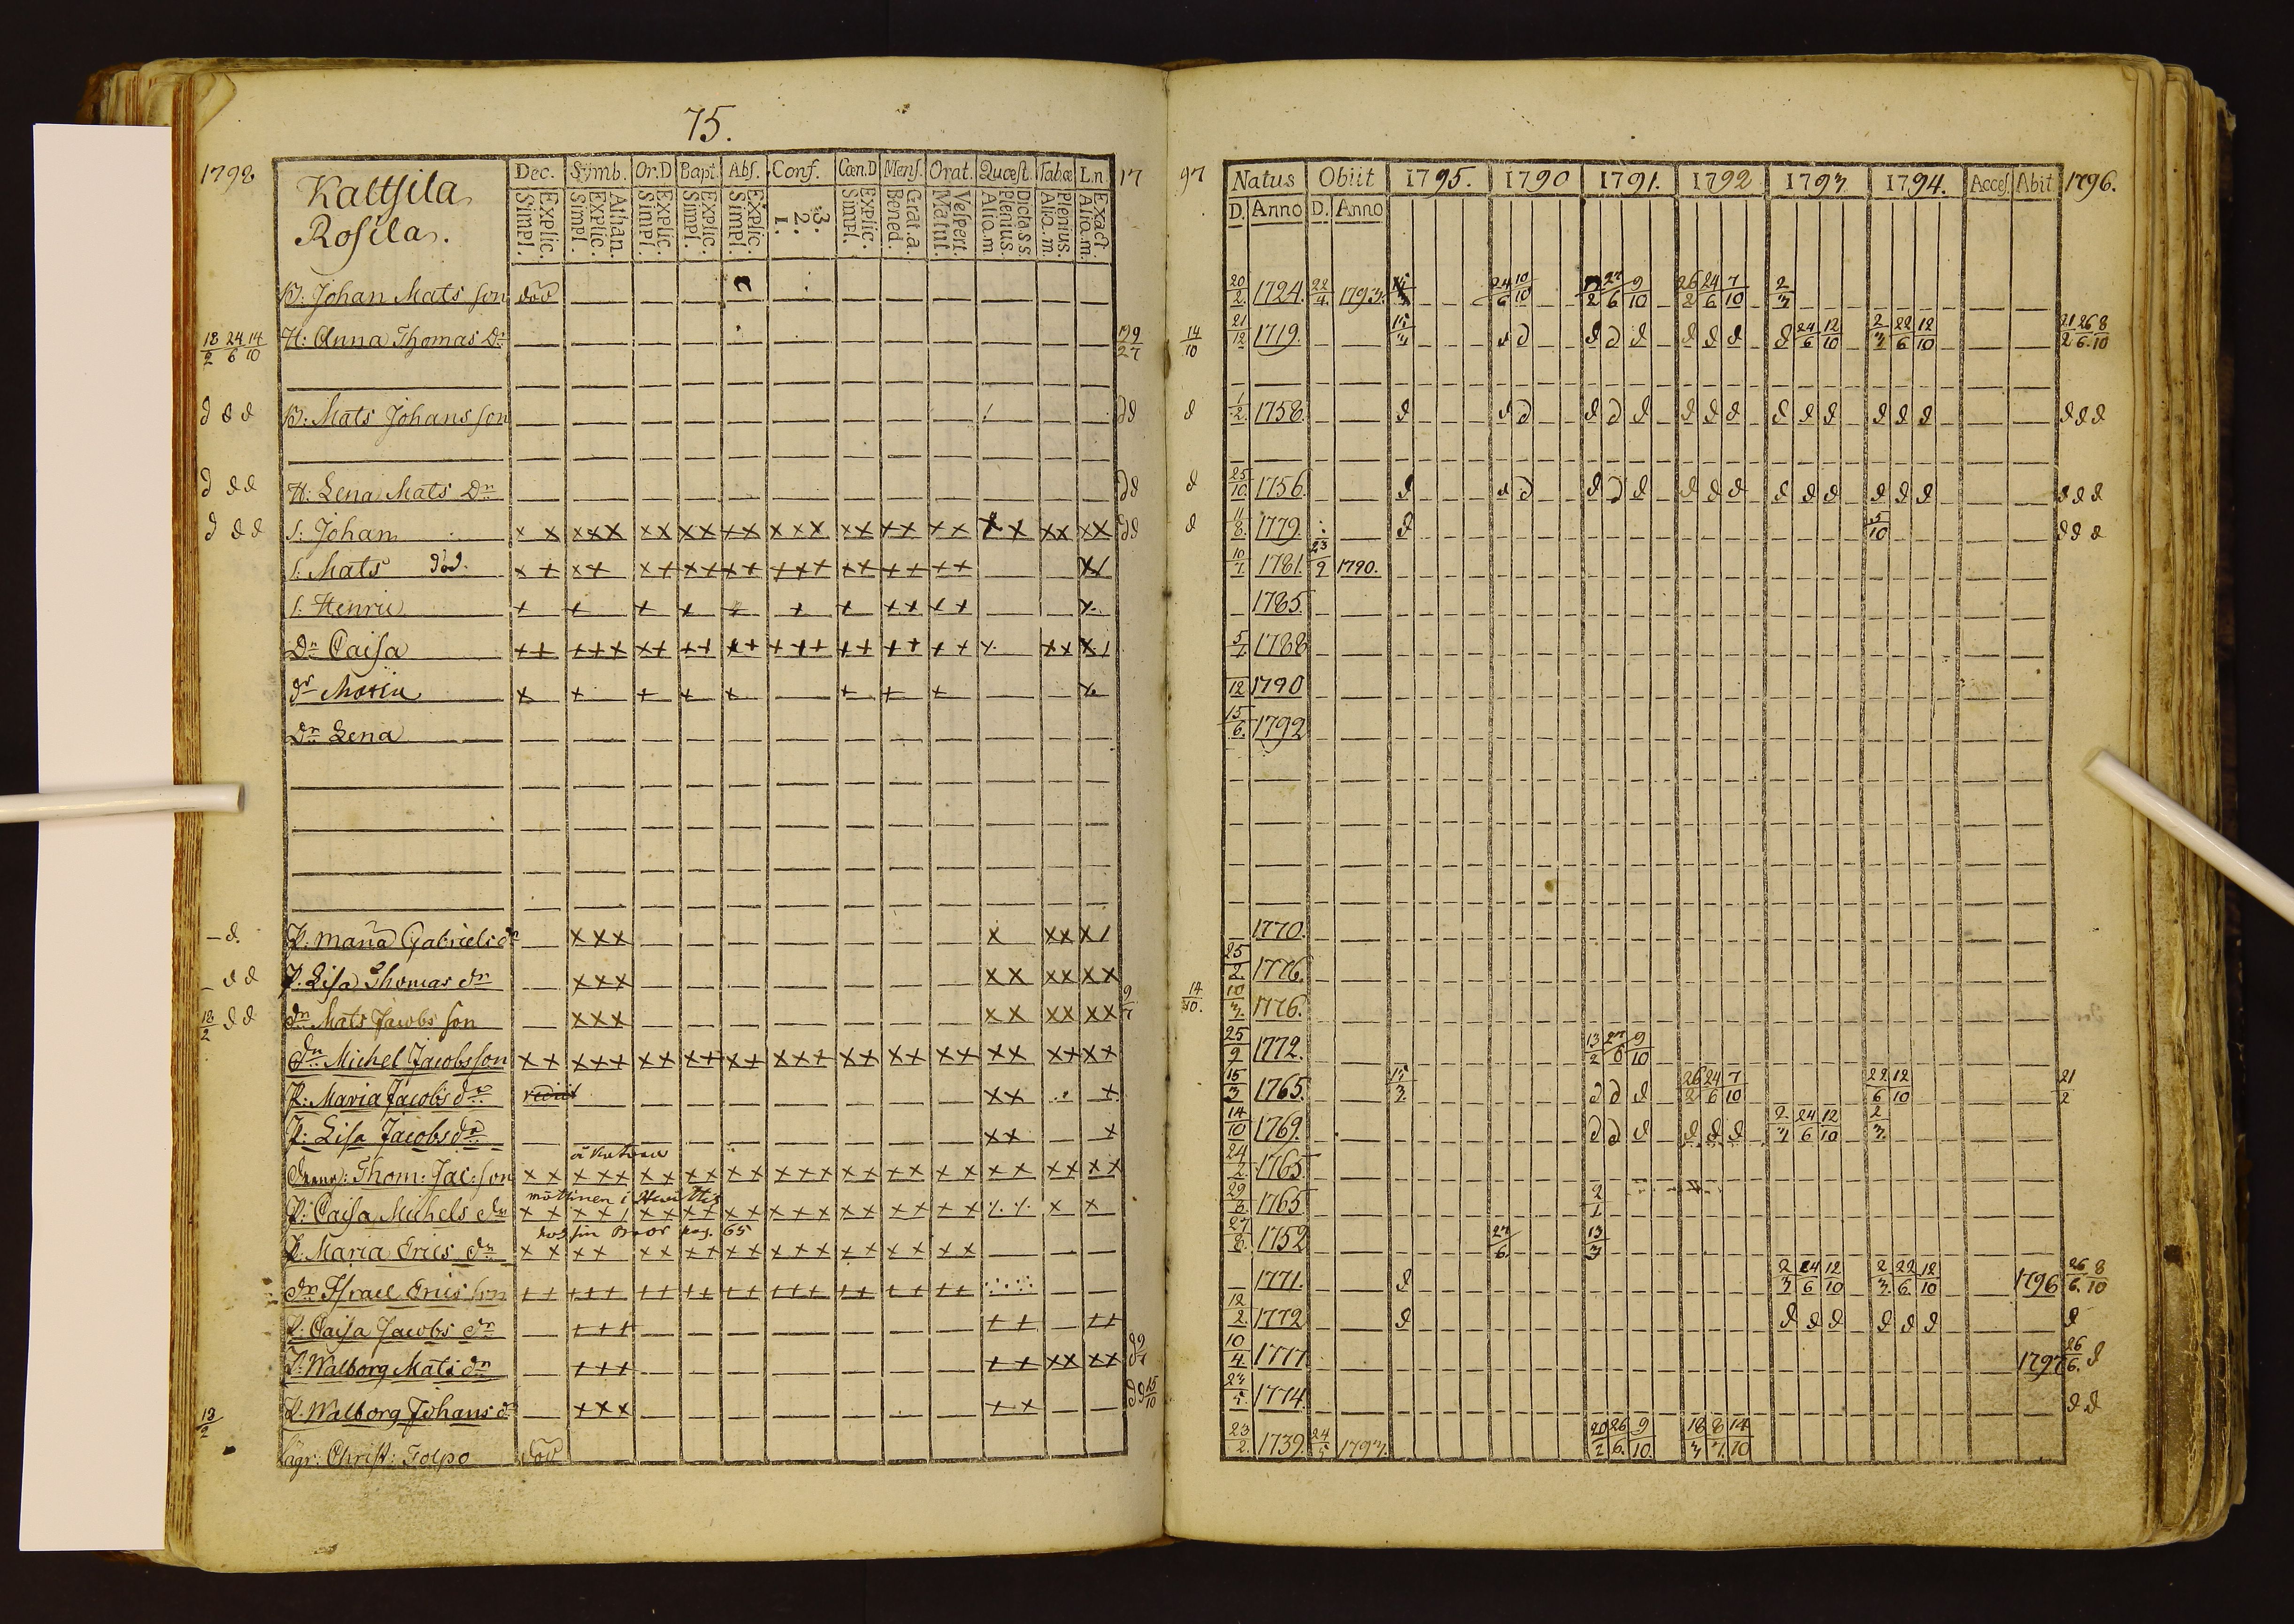 75.
1798
Kaltsila
Rosila.
Dec. Simb. Or.D Bapt. Abs. Conf. Cœn.D Mens. Orat. Quæst. Tabæ L.n 17
Explic. Simpl. Athan. Explic. Simpl. Explic. Simpl. Explic. Simpl. Explic. Simpl. 3. 2. 1. Explic. Simpl. Grat.a. Bened. Vespert. Matut. Dictass Plenius. Aliq.m Plenius. Aliq.m. Exact Aliq.m.
B: Johan Mats son död
18/2 24/6 14/10 H: Anna Thomas Dr
d d d B: Mats Johans son dd
d d d H: Lena Mats Dr dd
d d d S. Johan x x xxx xx xx xx xxx xx xx xx xx xx xx dd
S. Mats död. x x xx xx xx xx xxx xx xx xx
S. Henric x x x x x x x xx xx x
Dr Caisa xx xxx xx xx xx xxx xx xx xx x xx x/
dr Maria x x x x x x x x x
Dr Lena
– d. P: Maria Gabriels dr xxx x xx x/
– d d P. Lisa Thomas dr xxx xx xx xx
18/2 d d dr Mats Jacobs son xxx xx xx xx 9/7
dr Michel Jacobsson xx xxx xx xx xx xxx xx xx xx xx xx xx
P: Maria Jacobs dr rediit xx x
P: Lisa Jacobs dr xx x
Thom: Jac: son xx xxx xx xx xx xxx xx xx xx xx xx xx
P: Caisa Michels dr xx xx/ xx xx xx xxx xx xx xx x x
hos sin Bror pag. 65
P. Maria Erics dr xx xx xx xx xx xxx xx xx xx
dr Israel Erics son xx xxx xx xx xx xxx xx xx xx
P. Caisa Jacobs dr xxx xx xx
P. Walborg Mats dr xxx xx xx xx
13/2 P. Walborg Johans d xxx xx dd 15/10
Christ: Tolpo död
97 Natus Obiit 1795. 1790 1791. 1792 1793 1794. Acces. Abit 1796.
D. Anno D. Anno
20/2. 1724. 22/4. 1793. 24/6 10/10 27/6 9/10 26/2 24/6 7/10 2/3
14/10 21/12 1719. 15/3 d d d d d d d d d 24/6 12/10 2/3 22/6 12/10 21/2 26/6. 8/10
d 1/2. 1758. d d d d d d d d d d d d d d d d d d
d 25/10. 1756. d d d d d d d d d d d d d d d d d d
d 11/8. 1779. d 5/10 d d d
10/7 1781. 23/9 1790.
1785.
5/7. 1788
12 1790
15/6. 1792
1770.
25/2. 1776.
14/10. 10/3. 1776.
25/9 1772. 13/2 27/6 9/10
15/3 1765. 15/3 d d d 26/2 24/6 7/10 22/6 12/10 21/2
14/10 1769. d d d d d d 2/3 24/6 12/10 2/3.
24/2. 1765
29/8. 1765 2/1
27/8. 1752 27/6. 13/3
1771. d 2/3 24/6 12/10 2/3. 22/6. 12/10 1796 26/6. 8/10
12/2. 1772 d d d d d d d d
10/4. 1777 1797 26/6. d
1774. d d
23/2. 1739. 24/5 1793. 20/2 26/6. 9/10. 18/3 8/7. 14/10